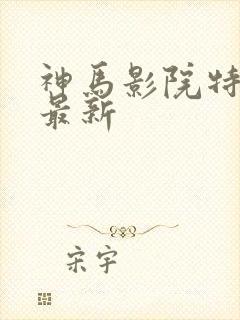 神馬影院特
最新
宋宇